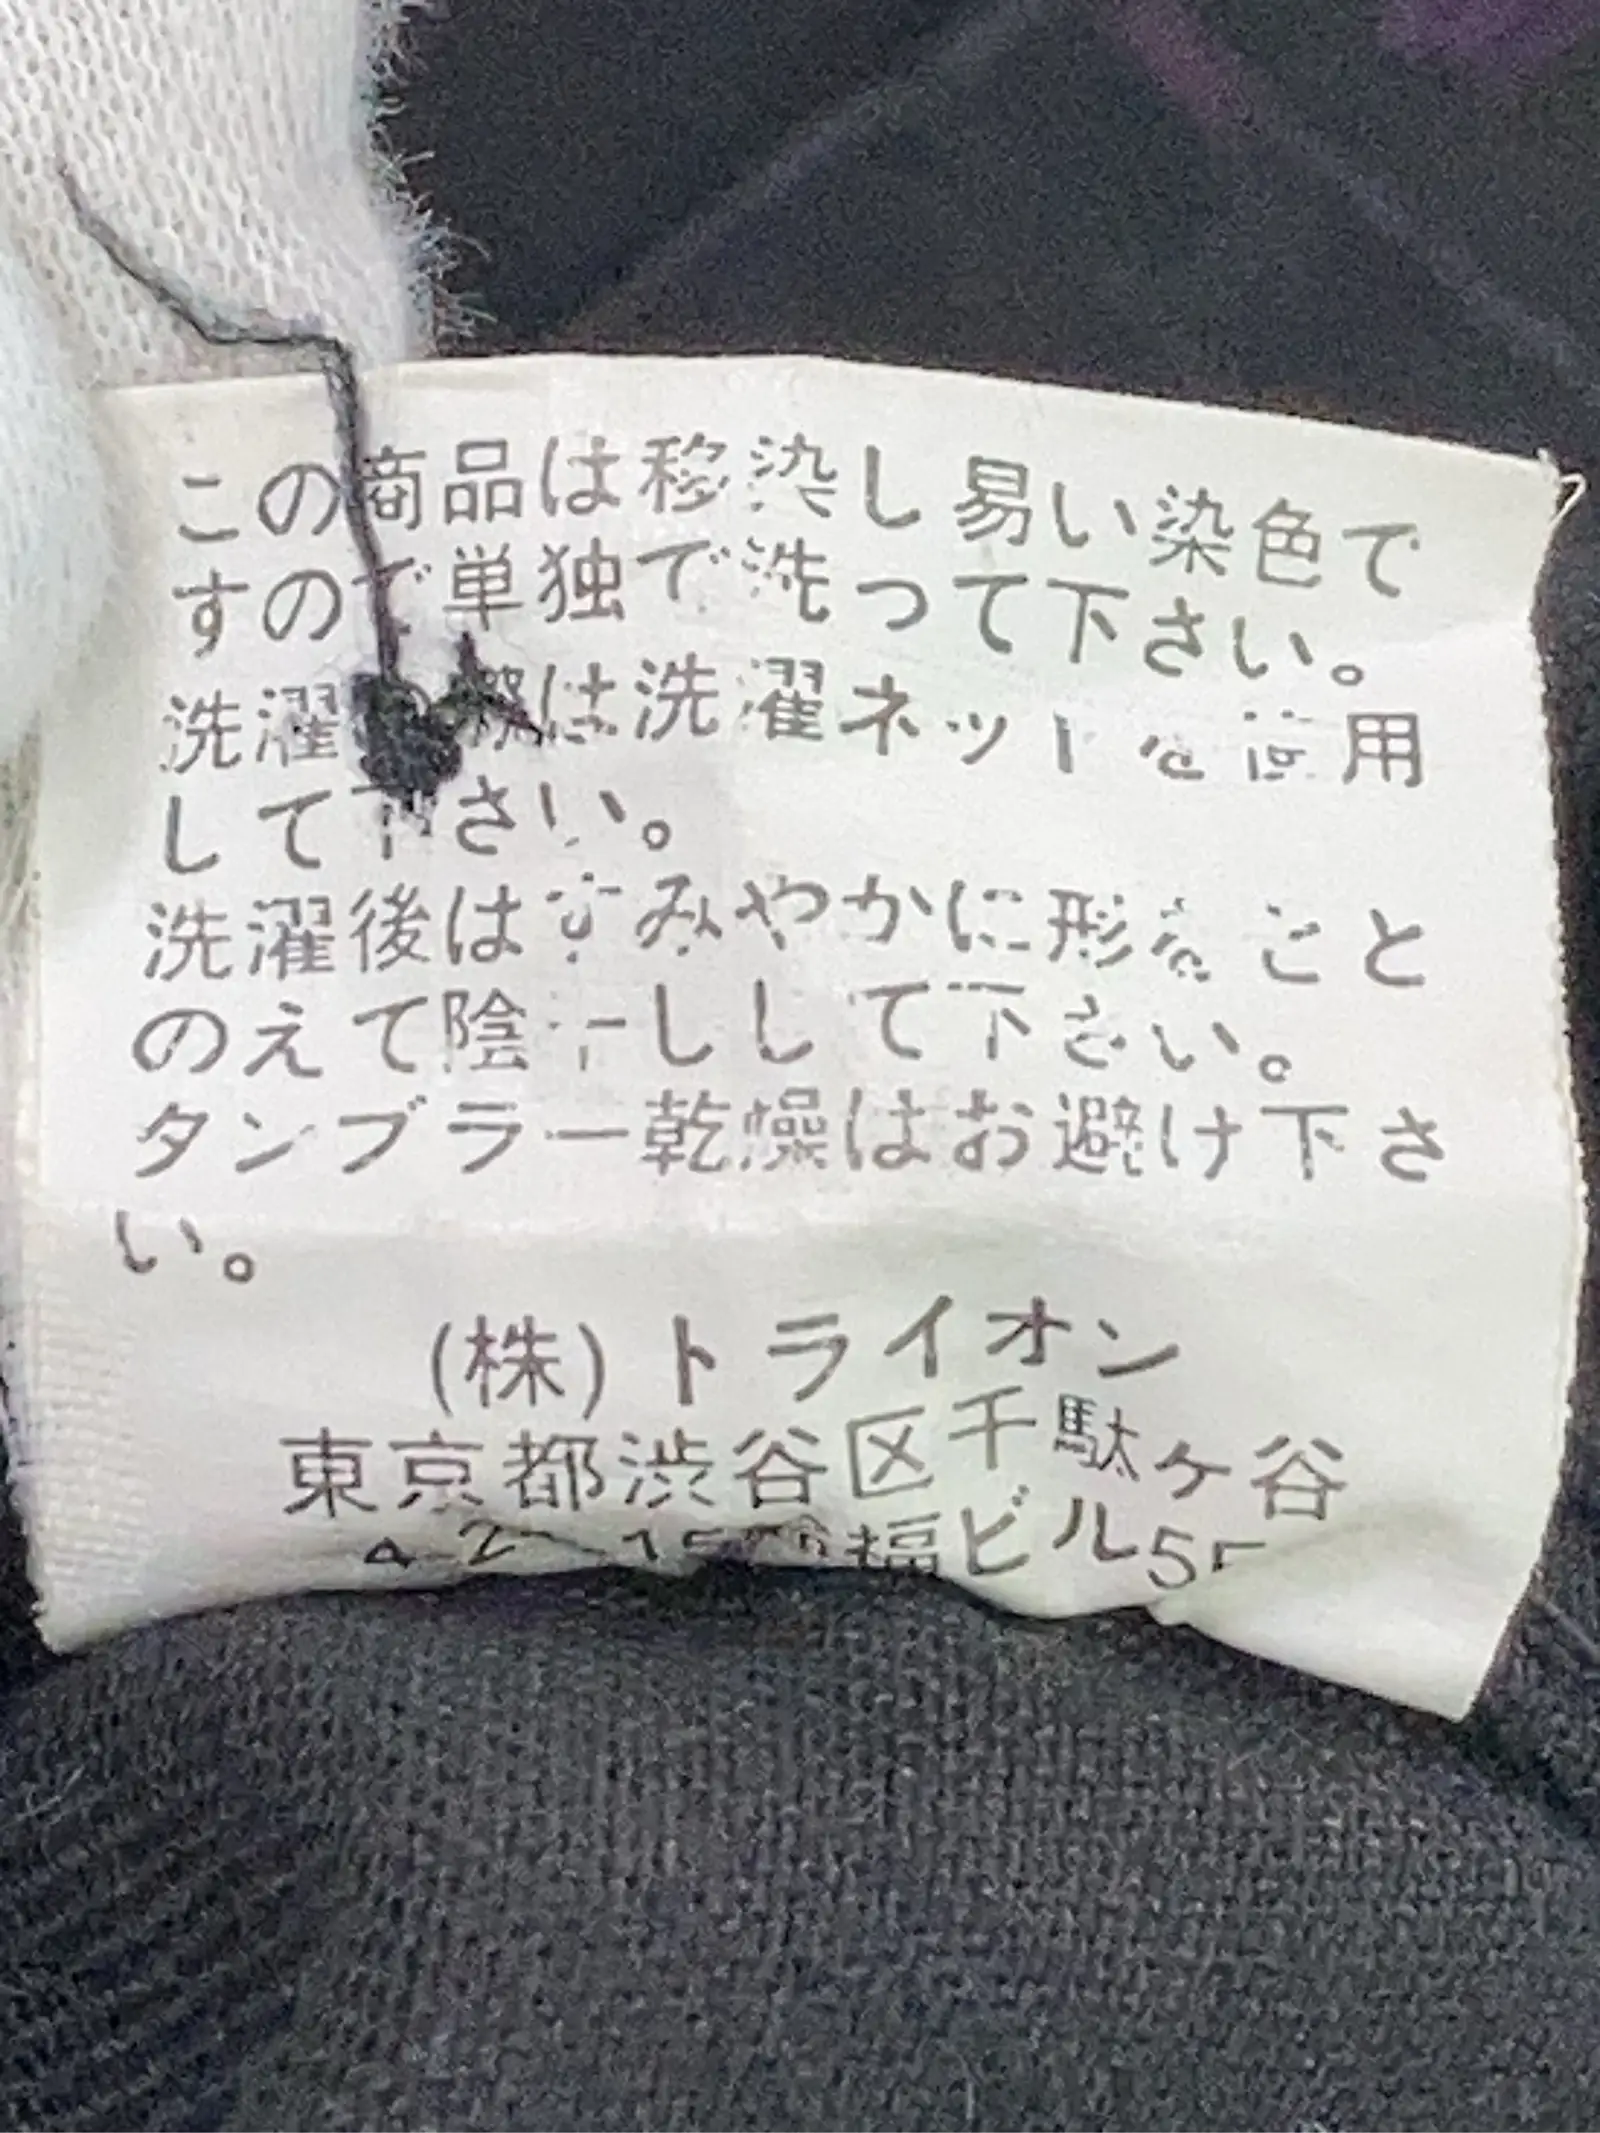 この商品は移染し易い染色で
すので単独で洗って下さい。
洗濯 は洗濯ネットを使用
して下さい。
洗濯後はすみやかに形をとと
のえて陰干しして下さい。
タンブラー乾燥はお避け下さ
い。
(株)トライオン
東京都渋谷区千駄ヶ谷
福ビル5F